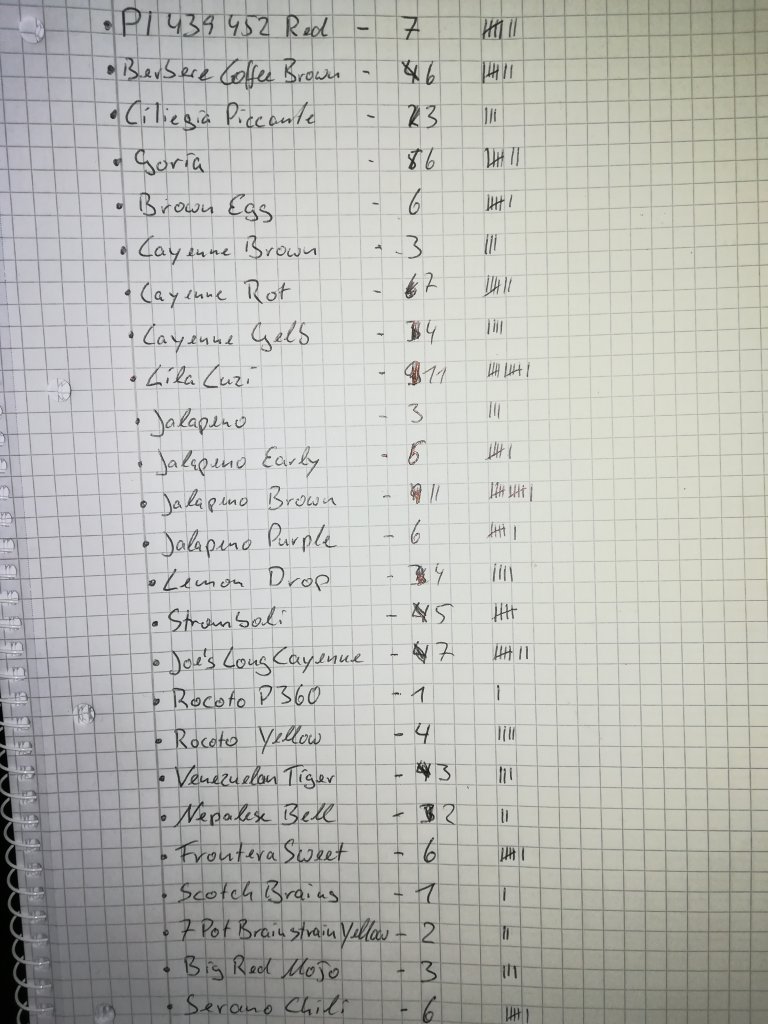 • PI 439 452 Red - 7
• Berbere Coffee Brown - 6
• Ciliegia Piccante - 3
• Goria - 6
• Brown Egg - 6
• Cayenne Brown - 3
• Cayenne Rot - 7
• Cayenne Gelb - 4
• Lila Luzi - 11
• Jalapeno - 3
• Jalapeno Early - 6
• Jalapeno Brown - 11
• Jalapeno Purple - 6
• Lemon Drop - 4
• Stromboli - 5
• Joe's Long Cayenne - 7
• Rocoto P360 - 1
• Rocoto Yellow - 4
• Venezuelan Tiger - 3
• Nepalese Bell - 2
• Frontera Sweet - 6
• Scotch Brains - 1
• 7 Pot Brainstrain Yellow - 2
• Big Red Mojo - 3
• Serano Chili - 6